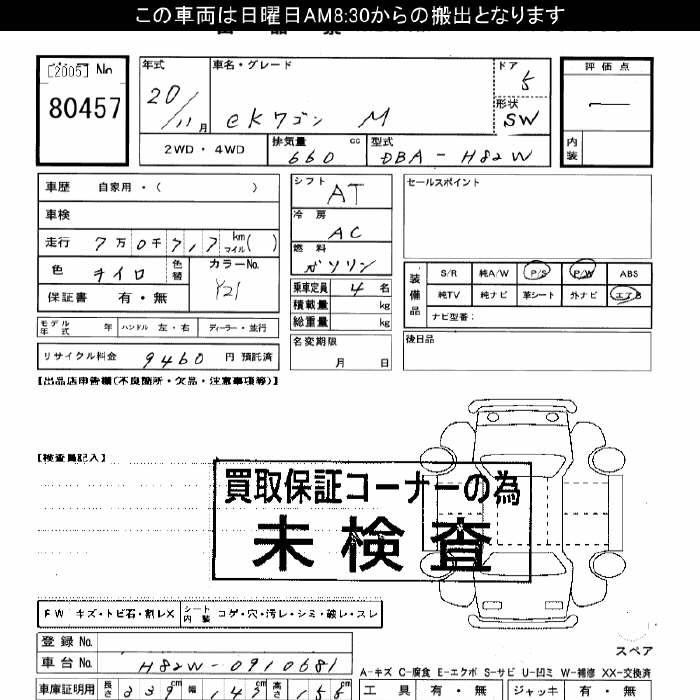 この車両は日曜日AM8:30からの搬出となります
[2005] No
80457
年式
20/11月
車名・グレード
eKワゴン M
ドア
5
形状
SW
評価点
内装
2WD・4WD
排気量 660 cc
型式 DBA-H82W
車歴 自家用・( )
車検
走行 7万0千717 km マイル( )
色 キイロ 色替
カラーNo. Y21
保証書 有・無
シフト AT
冷房 AC
燃料 ガソリン
乗車定員 4 名
積載量 kg
総重量 kg
名変期限
月 日
セールスポイント
装備品
S/R 純A/W P/S P/W ABS
純TV 純ナビ 革シート 外ナビ エアB
ナビ型番:
後日品
モデル年式 年 ハンドル 左・右 ディーラー・並行
リサイクル料金 9460 円 預託済
【出品店申告欄(不良箇所・欠品・注意事項等)】
【検査員記入】
買取保証コーナーの為
未検査
FW キズ・トビ石・割レX シート内装 コゲ・穴・汚レ・シミ・破レ・スレ
登録 No.
車台 No. H82W-0910681
スペア
A-キズ C-腐食 E-エクボ S-サビ U-凹ミ W-補修 XX-交換済
車庫証明用 長さ 339cm 幅 147cm 高さ 155cm
工具 有・無 ジャッキ 有・無